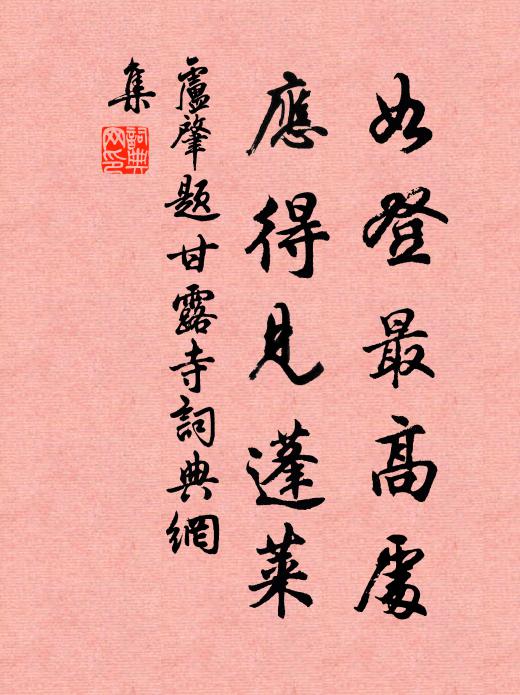 如登最高處
應得見蓬萊
盧肇題甘露寺詞典網
集
詞典網印